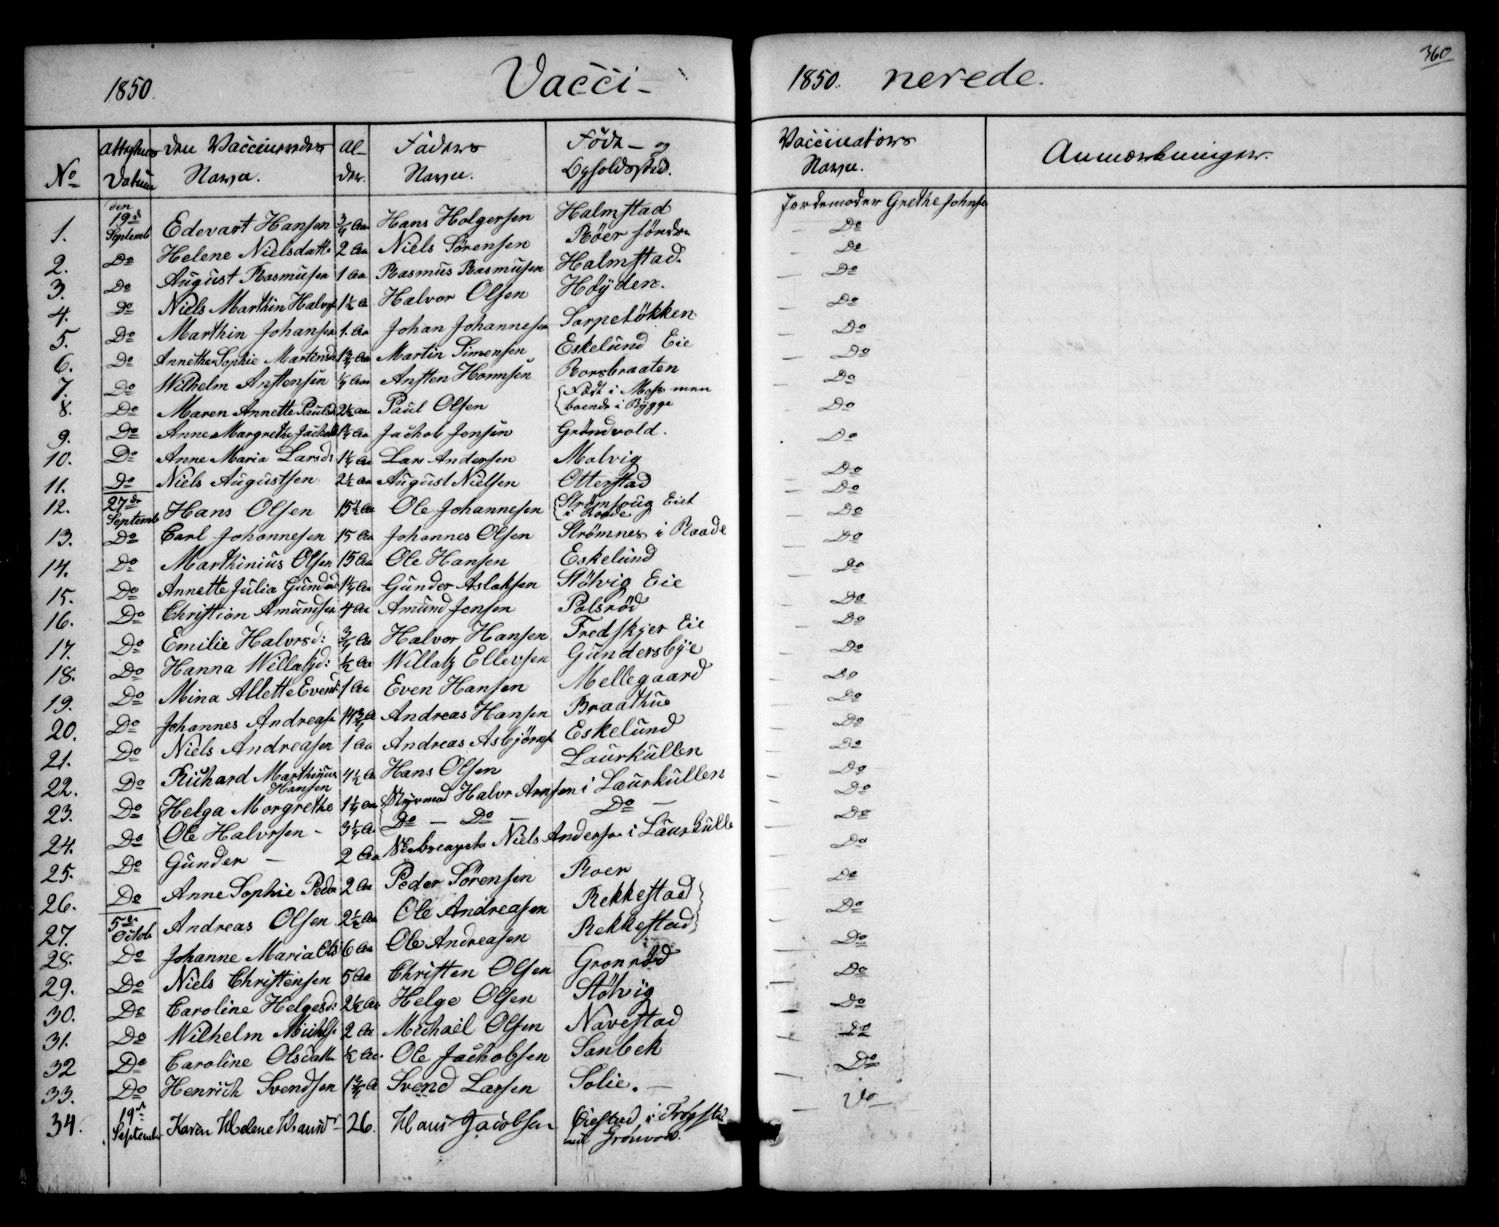 360
1850. Vacci- 1850. nerede.
No
Attestens Datum
den Vaccineredes Navn.
Al-
der.
Faders
Navn.
Føde- og
Opholdssted.
Vaccinators
Navn.
Anmærkninger.
1. den 19de Septemb Edevart Hansen 3/4 Aar Hans Holgersen Halmstad Jordemoder Grethe Johns
2. Do Helene Nielsdatt 2 Aar Niels Sørensen Röer söndre Do
3. Do August Rasmusen 1 Aar Rasmus Rasmusen Halmstad. Do
4. Do Niels Marthin Halvors 1½ A Halvor Olsen Höyden. Do
5. Do Marthin Johansen 1. Aar Johan Johannesen Sarpelökken Do
6. Do Annethe Sophie Martinsd 1¾ Aar Martin Simensen Eskelund Eie Do
7. Do Wilhelm Anstensen Aar Ansten Rorsbraaten Do
8. Do Maren Annette Paulsd 2½ Aar Paul Olsen Född i Moss men
boende i Rygge Do
9. Do Anne Margrethe Jachobs Aar Jachob Jensen Gröndvold. Do
10. Do Anne Maria Larsd: Aar Lars Andersen Malvig Do
11. Do Niels Augustsen Aar August Nielsen Otterstad Do
12. 27de Septemb Hans Olsen 15½ Aar Ole Johannesen Eiet
i Raade Do
13. Do Carl Johannesen 15 Aar Johannes Olsen Strömnes i Raade Do
14. Do Marthinius Olsen 15 Aar Ole Hansen Eskelund Do
15. Do Annette Julia Gunders Aar Gunder Aslaksen Stötvig Eie Do
16. Do Christian Amundsen 4 Aar Amund Jensen Palsröd Do
17. Do Emilie Halvorsd: 3/4 Aar Halvor Hansen Fredskjer Eie Do
18. Do Hanna Willatzd: Aar Willatz Ellevsen Gundersbye Do
19. Do Mina Allette Evens 1 Aar Even Hansen Mellegaard Do
20. Do Johannes Andreas 14¾ A Andreas Hansen Braathue Do
21. Do Niels Andreasen 1 Aar Andreas Asbjörns Eskelund Do
22. Do Richard Marthinius
Hansen 4½ A Hans Olsen Laurkullen Do
23. Do Helga Margrethe Aar Halvor Arnsen i Laurkullen Do
24. Do Ole Halvorsen - A Do - Do - Do - Do
25. Do Gunder - 2 Aar Niels Andersen i Laurkulle Do
26. Do Anne Sophie Peder 2 Aar Peder Sörensen Roer Do
27. 5te Octob Andreas Olsen 2½ Aar Ole Andreasen Rekkestad Do
28. Do Johanne Maria Ols 6 Aar Ole Andreasen Rekkestad Do
29. Do Niels Christensen 5 Aar Christen Olsen Gronröd Do
30. Do Caroline Helgesd: 2½ Aar Helge Olsen Stötvig Do
31. Do Wilhelm Michels 2 Aar Michael Olsen Navestad Do
32 Do Caroline Olsdatter ½ Aar Ole Jachobsen Sanbek Do
33. Do Henrich Svendsen 1¾ A Svend Larsen Solie. - Do
34. 19de September Karen Helene 26. Hans Jacobsen i Trögstad
Grönvold. Do